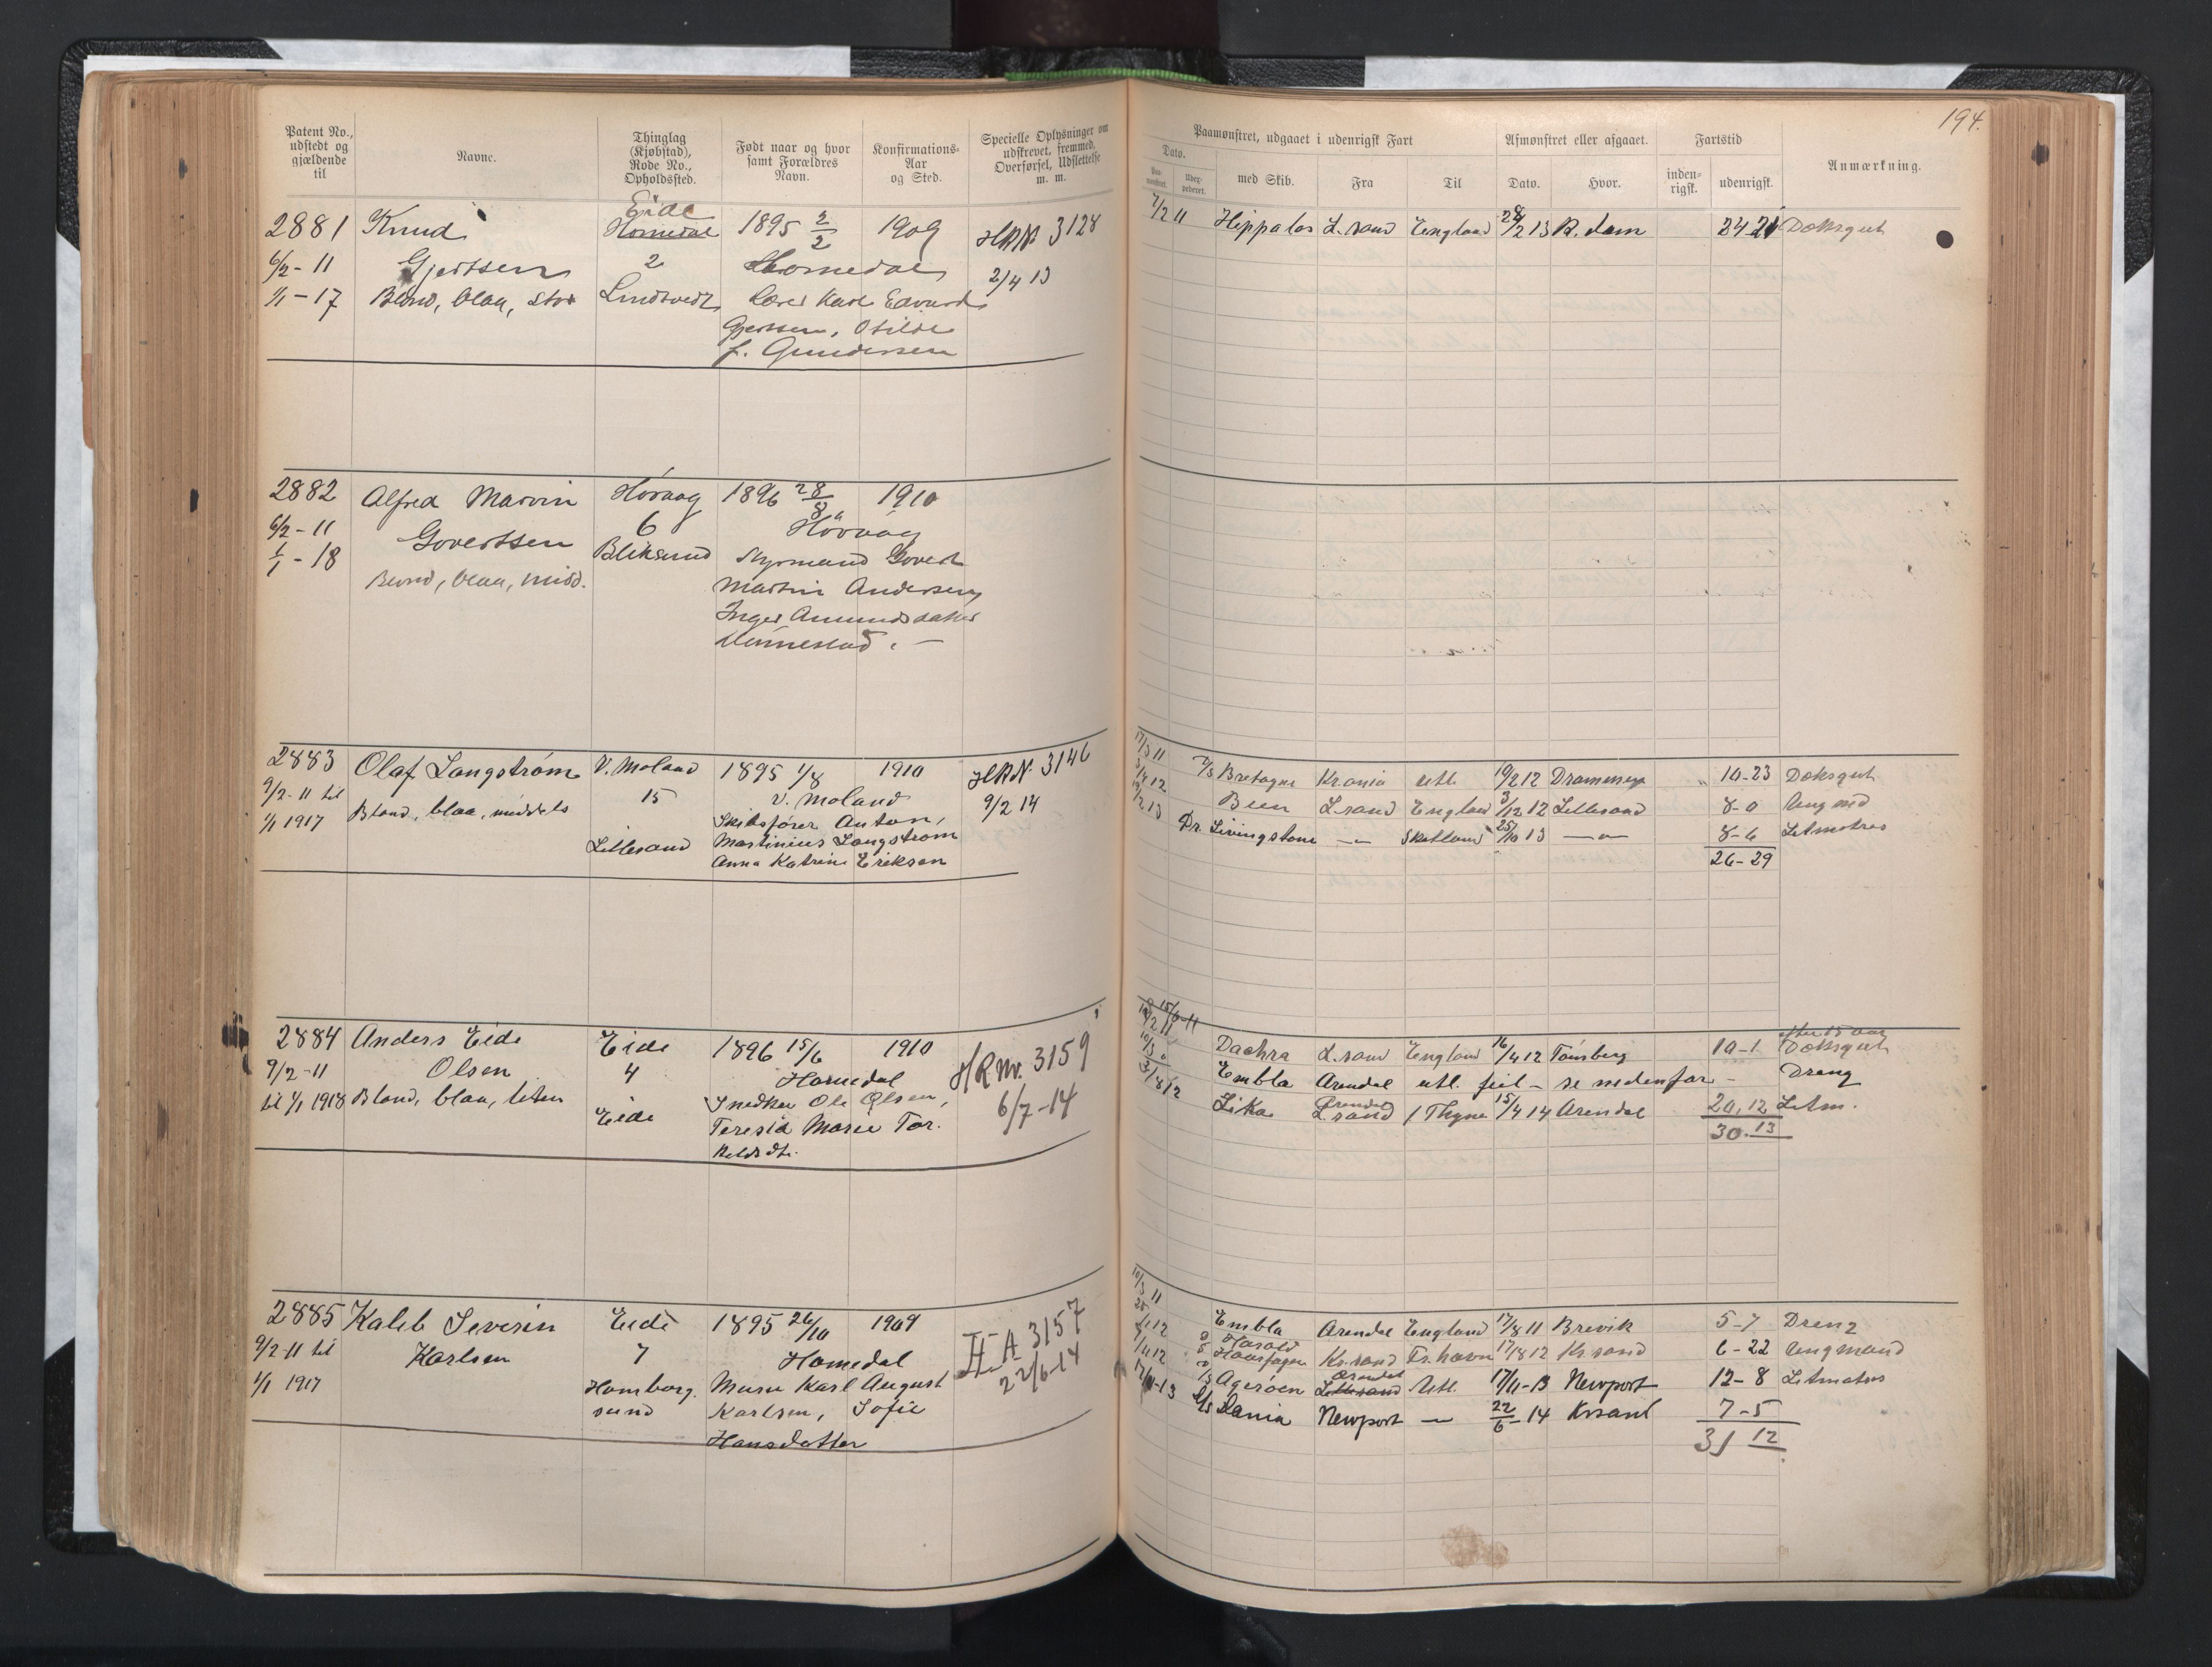 194.
Patent No., udstedt og gjældende til
Navne.
Thinglag (Kjøbstad), Rode No., Opholdssted.
Født naar og hvor samt Forældres Navn.
Konfirmations-Aar og Sted.
Specielle Oplysninger om udskrevet, fremmed, Overførsel, Udslettelse m. m.
Paamønstret, udgaaet i udenrigsk Fart
Dato.
Paamønstret.
Udexpederet.
med Skib.
Fra
Til
Afmønstret eller afgaaet.
Dato.
Hvor.
Fartstid
indenrigsk.
udenrigsk.
Anmærkning.
2881 Knud Eide 1895 2/2 1909 HRN 3128
Homedal
6/2 - 11 Gjertsen 2 Homedal 2/4 13
1/1 - 17 Blond, blaa, stor Lindtvedt Lærer Karl Edvard
Gjertsen, Otilde
f. Gundersen
7/2 11 Hippalos L.sand England 28/2 13 R.dam 24 21 Doksgut
2882 Alfred Marvin Høvaag 1896 28/8 1910
6/2 - 11 Govertsen 6 Høvaag
1/1 - 18 Blond, blaa, midd. Bliksund Styrmand Govert
Martin Andersen,
Inger Amundsdatter
Vennestad. —
2883 Olaf Langstrøm V. Moland 1895 1/8 1910 HRN. 3146
9/2 - 11 til 15 V. Moland 9/2 14
1/1 1917 Blond, blaa, middels Skibsfører Anton,
Lillesand Martinius Langstrøm
Anna Katrine Eriksen
17/3 11 Bretagne Kr.ania utl. 19/2 12 Drammen 10-23 Doksgut
Been L.sand England 3/12 12 Lillesand 8-0 Ungmd
Dr. Livingstone —"— Skotland 25/10 13 —"— 8-6 Letmatros
26-29
2884 Anders Eide Eide 1896 15/6 1910 HRNr. 3159
9/2 - 11 Olsen 4 Homedal 6/7-14
til 1/1 1918 Blond, blaa, liten Eide Snedker Ole Olsen,
Teresia Marie Tor.
keldsdt.
15/6-11
Dachra L.sand England 16/4 12 Tønsberg 10-1 Doksgut
Embla Arendal utl. feil - se nedenfor - Dreng
Lika L.sand Arendal / Thyne 15/4 14 Arendal 20, 12 Letm.
30. 13
2885 Kaleb Severin Eide 1895 26/10 1909 H A 3157
9/2 - 11 til Karlsen 7 Homedal 22/6-14
1/1 1917 Homborg. Murer Karl August
sund Karlsen, Sofie
Hansdatter
10/3 11 Embla Arendal England 17/8 11 Brevik 5-7 Dreng
Harald
Haarfagre Kr.sand Fr.havn 17/8 12 Kr.sand 6-22 Ungmand
Arendal
Agerøen Lillesand Utl. 17/11-13 Newport 12-8 Letmatros
17/11-13 S/S Dania Newport — 22/6-14 Krsand 7-5
31 12